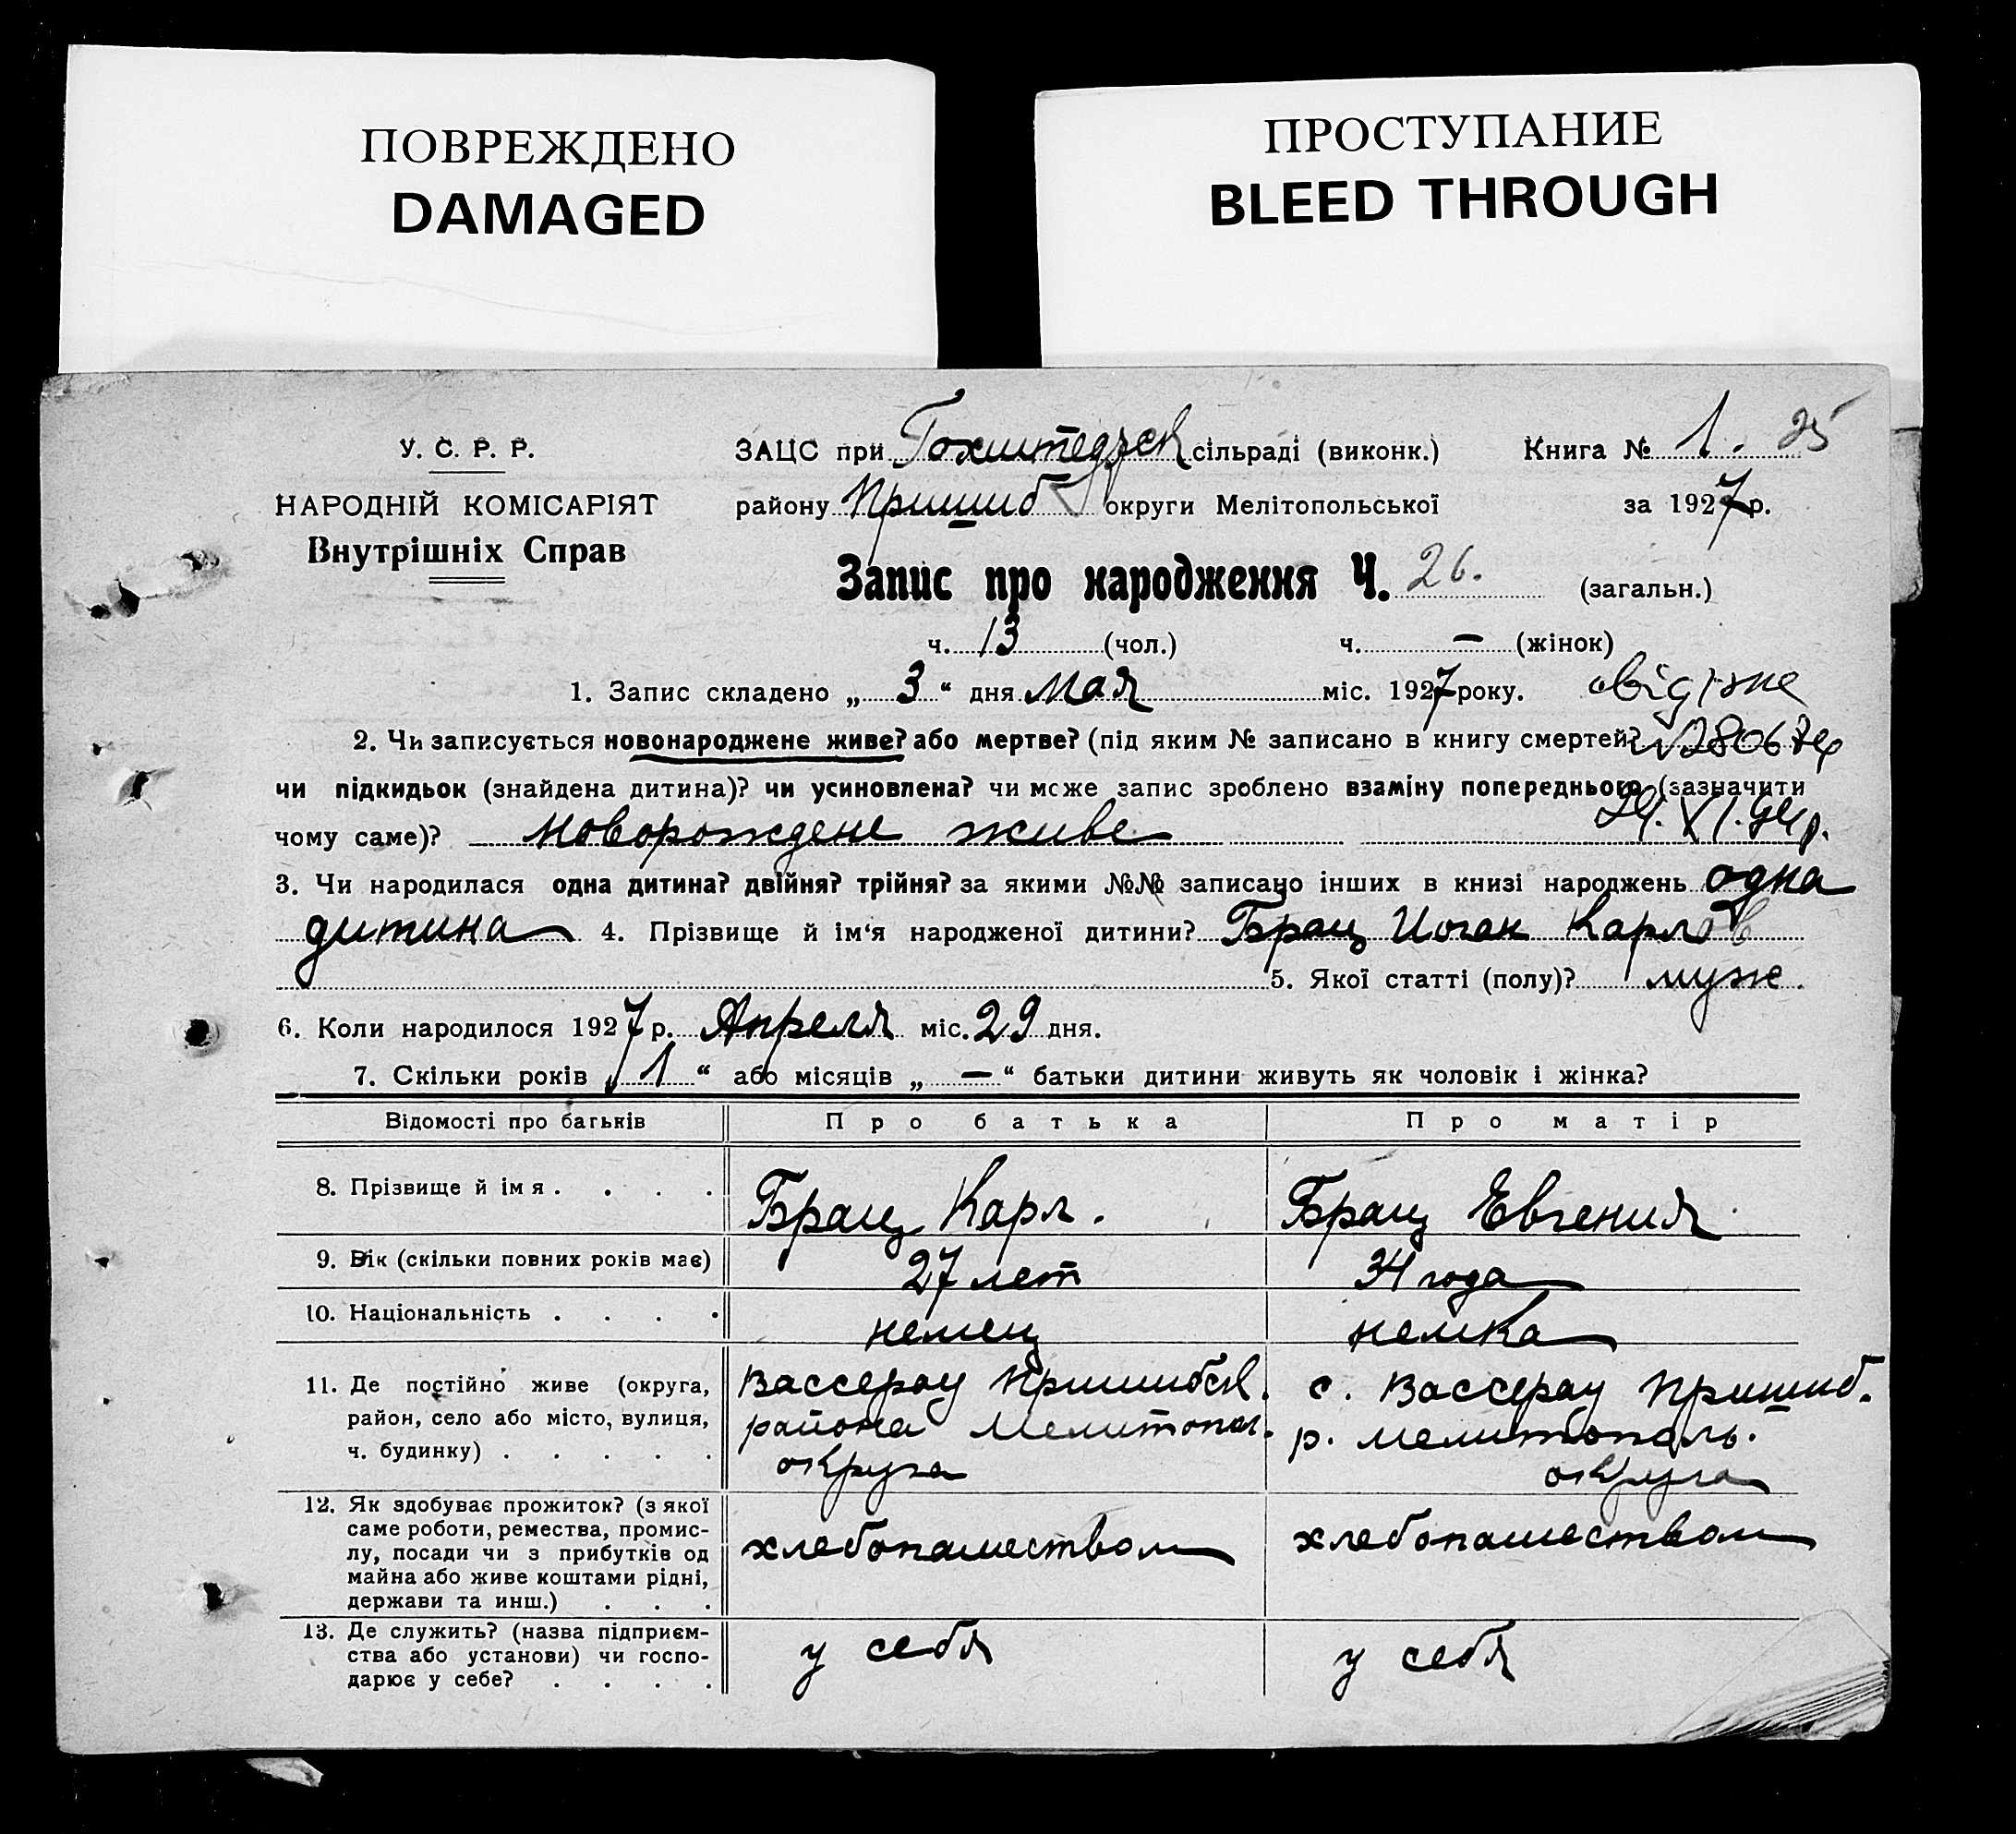 ПОВРЕЖДЕНО
DAMAGED
ПРОСТУПАНИЕ
BLEED THROUGH
У. С. Р. Р.
НАРОДНІЙ КОМІСАРІЯТ
Внутрішніх Справ
ЗАЦС при Гохштедтск сільраді (виконк.) Книга № 1. 25
району Пришиб округи Мелітопольської за 1927 р.
Запис про народження Ч. 26. (загальн.)
ч. 13 (чол.) ч. — (жінок)
1. Запис складено „ 3 “ дня мая міс. 1927 року.
2. Чи записується новонароджене живе? або мертве? (під яким № записано в книгу смертей?
чи підкидьок (знайдена дитина)? чи усиновлена? чи може запис зроблено взаміну попереднього (зазначити
чому саме)? Новорождене живе
3. Чи народилася одна дитина? двійня? трійня? за якими №№ записано інших в книзі народжень одна
дитина 4. Прізвище й ім‘я народженої дитини? Брац Иоган Карлов
5. Якої статті (полу)? муж.
6. Коли народилося 1927 р. Апреля міс. 29 дня.
7. Скільки років „ 1 “ або місяців „ — “ батьки дитини живуть як чоловік і жінка?
Відомості про батьків Про батька Про матір
8. Прізвище й імя . . . . Брац Карл. Брац Евгения
9. Вік (скільки повних років має) 27 лет 34 года
10. Національність . . . . немец немка
11. Де постійно живе (округа, район, село або місто, вулиця, ч. будинку) . . . . .
Вассерау Пришибск. района Мелитопол. округа
с. Вассерау Пришиб. р. Мелитополь. округа
12. Як здобуває прожиток? (з якої саме роботи, ремества, промислу, посади чи з прибутків од майна або живе коштами рідні, держави та инш.) . . .
хлебопашеством хлебопашеством
13. Де служить? (назва підприємства або установи) чи господарює у себе? . . . .
у себя у себя